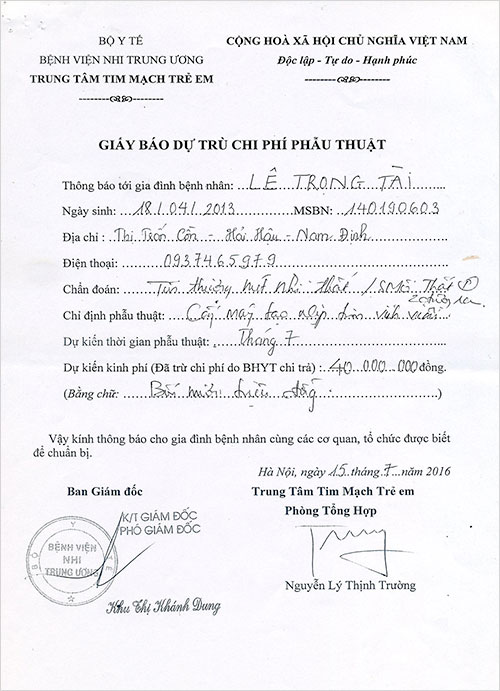 BỘ Y TẾ
BỆNH VIỆN NHI TRUNG ƯƠNG
TRUNG TÂM TIM MẠCH TRẺ EM
CỘNG HOÀ XÃ HỘI CHỦ NGHĨA VIỆT NAM
Độc lập - Tự do - Hạnh phúc
GIÁY BÁO DỰ TRÙ CHI PHÍ PHẪU THUẬT
Thông báo tới gia đình bệnh nhân: LÊ TRỌNG TÀI
Ngày sinh: 18/04/2013 MSBN: 140190603
Địa chỉ: Thị Trấn Cồn - Hải Hậu - Nam Định
Điện thoại: 0937465979
Chẩn đoán: nhĩ thất
Chỉ định phẫu thuật: Cấy máy tạo nhịp
Dự kiến thời gian phẫu thuật: Tháng 7
Dự kiến kinh phí (Đã trừ chi phí do BHYT chi trả): 40 000 000 đồng.
(Bằng chữ: Bốn mươi triệu đồng)
Vậy kính thông báo cho gia đình bệnh nhân cùng các cơ quan, tổ chức được biết
để chuẩn bị.
Hà Nội, ngày 15 tháng 7 năm 2016
Ban Giám đốc
Trung Tâm Tim Mạch Trẻ em
Phòng Tổng Hợp
K/T GIÁM ĐỐC
PHÓ GIÁM ĐỐC
BỘ Y TẾ
BỆNH VIỆN
NHI
TRUNG ƯƠNG
Khu Thị Khánh Dung
Nguyễn Lý Thịnh Trường